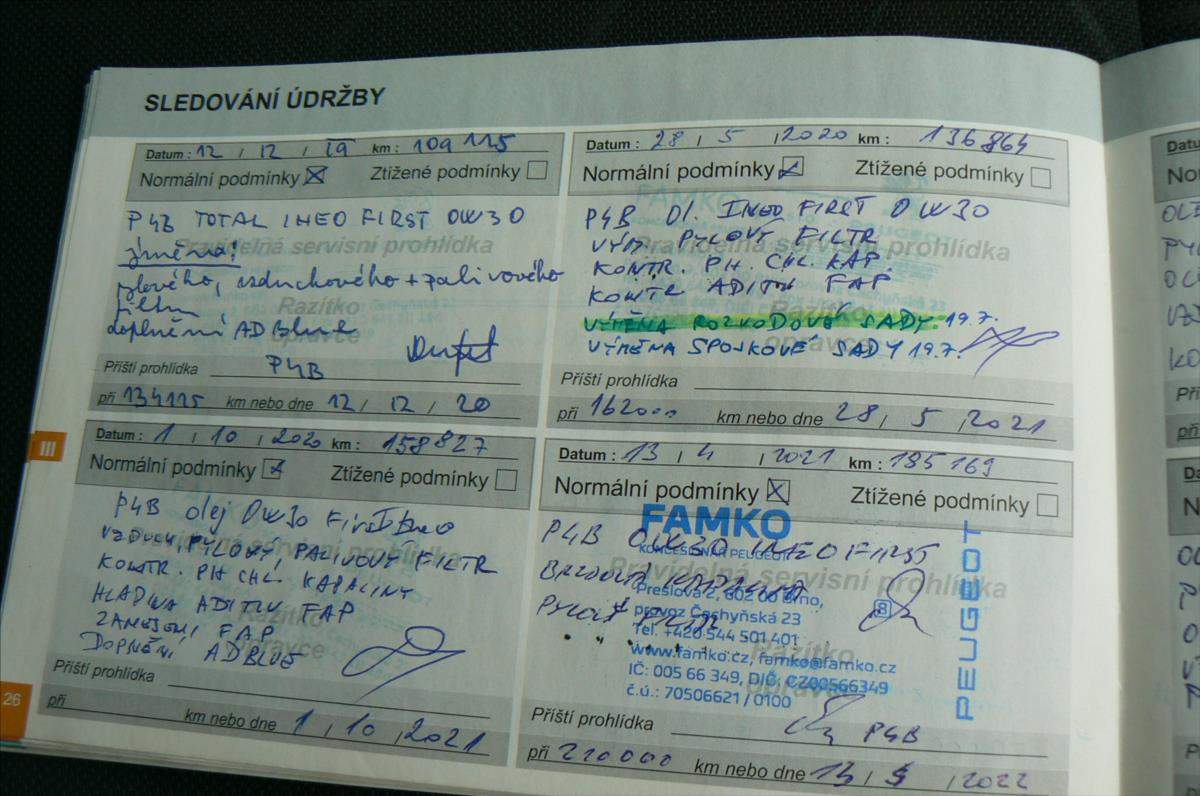 SLEDOVÁNÍ ÚDRŽBY
Datum : 12 / 12 / 19 km : 109 115
Normální podmínky Ztížené podmínky
P4B TOTAL INEO FIRST 0W30
Pravidelná servisní prohlídka
vzduchového + palivového
Razítko
doplnění AD Blue
opravce
Příští prohlídka P4B
při 134115 km nebo dne 12 / 12 / 20
Datum : 28 / 5 / 2020 km : 136 864
Normální podmínky Ztížené podmínky
P4B Ol. INEO FIRST 0W30
VÝM. PYLOVÝ FILTR
Pravidelná servisní prohlídka
KONTR. PH. CHL. KAP.
KONTR ADITIV FAP
Razítko
VÝMĚNA ROZVODOVÉ SADY 19.7.
opravce
VÝMĚNA SPOJKOVÉ SADY 19.7.
Příští prohlídka
při 162000 km nebo dne 28 / 5 / 2021
III
Datum : 1 / 10 / 2020 km : 158827
Normální podmínky Ztížené podmínky
P4B olej 0W30 First Ineo
VZDUCH, PYLOVÝ, PALIVOVÝ FILTR
KONTR. PH CHL. KAPALINY
HLADINA ADITIV FAP
Razítko
ZANESENÍ FAP
DOPNĚNÍ ADBLUE
Příští prohlídka
při km nebo dne 1 / 10 / 2021
26
Datum : 13 / 4 / 2021 km : 185 169
Normální podmínky Ztížené podmínky
FAMKO
P4B 0W30 INEO FIRST
KONCESIONÁŘ PEUGEOT
Pravidelná servisní prohlídka
Přeslova 2, 602 00 Brno,
provoz Čechyňská 23
Tel. +420 544 501 401
Razítko
www.famko.cz, famko@famko.cz
IČ: 005 66 349, DIČ: CZ00566349
opravce
č.ú.: 70506621 / 0100
8
PEUGEOT
Příští prohlídka P4B
při 210000 km nebo dne 13 / / 2022